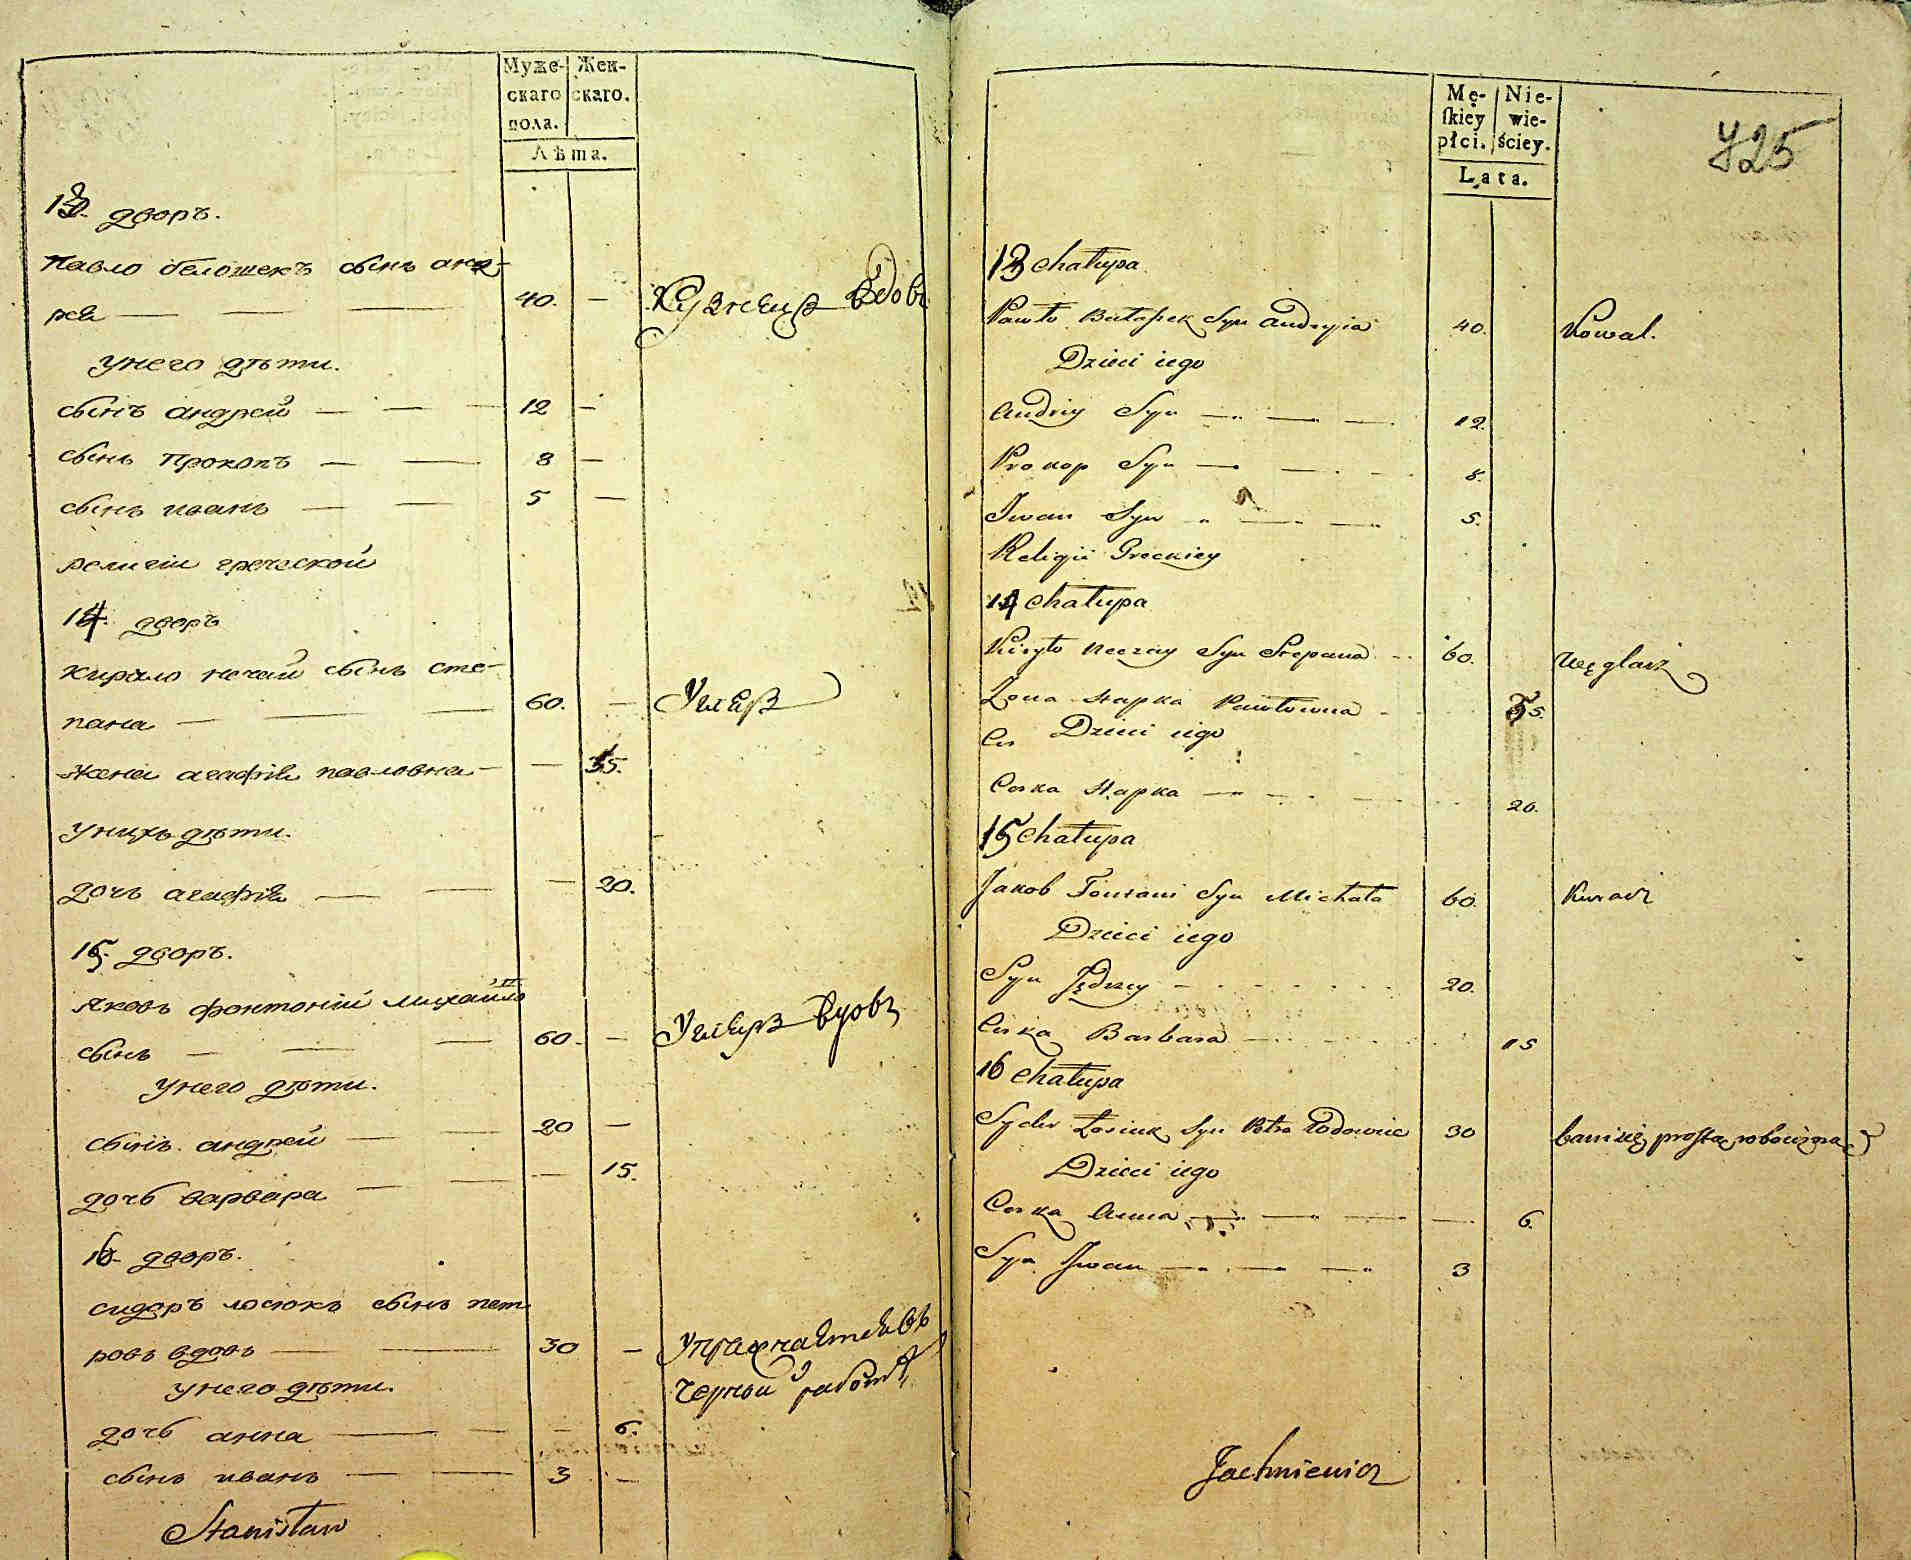 Муже-
скаго
пола.
Жен-
скаго.
Лѣта.
13. дворъ.
Павло белошекъ сынъ анд-
рея 40. —
Кузнецъ вдовъ
у него дѣти.
сынъ андрей 12 —
сынъ Прокопъ 8 —
сынъ иванъ 5 —
религии греческой
14. дворъ
кирило нечай сынъ сте-
пана 60. —
жена агафия павловна — 55.
у нихъ дѣти.
дочь агафия — 20.
15. дворъ.
яковъ фонтоний михайло
сынъ 60. — вдовъ
у него дѣти.
сынъ андрей 20 —
дочь варвара — 15.
16. дворъ.
сидоръ лосюкъ сынъ пет
ровъ вдовъ 30 —
черной работы
у него дѣти.
дочь анна — 6.
сынъ иванъ 3 —
Stanisław
Mę-
skiey
płci.
Nie-
wie-
ściey.
Lata.
725
13 chałupa
Pawło Syn Andryia 40. Kowal.
Dzieci iego
Andriy Syn 12.
Prokop Syn 8.
Iwan Syn 5.
Religii Greckiey
14 chałupa
Kiryło Neczay Syn Stepana 60. Węglarz
Żona Hapka Pawłowna 55.
Cor Dzieci iego
Corka Hapka 20.
15 chałupa
Jakob Fontani Syn Michała 60.
Dzieci iego
Syn Jędrzey 20.
Corka Barbara 15
16 chałupa
Syder Łosiuk Syn Petra Wdowiec 30 bawi się prostą robocizną
Dzieci iego
Corka Anna 6.
Syn Iwan 3
Jachniewicz